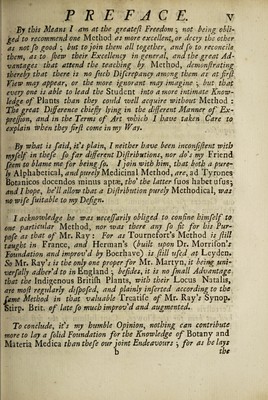 PREFACE. v
By this Means I am at the greatest Freedom; not being obli-
ged to recommend one Method as more excellent, or decry the other
as not so good; but to join them all together, and so to reconcile
them, as to shew their Excellency in general, and the great Ad-
vantages that attend the teaching by Method, demonstrating
thereby that there is no such Discrepancy among them as at first
View may appear, or the more ignorant may imagine; but that
every one is able to lead the Student into a more intimate Know-
ledge of Plants than they could well acquire without Method:
The great Difference chiefly being in the different Manner of Ex-
pression, and in the Terms of Art which I have taken Care to
explain when they first come in my Way.
By what is said, it's plain, I neither have been inconsistent with
myself in these so far different Distributions, nor do's my Friend
seem to blame me for being so. I join with him, that both a pure-
ly Alphabetical, and purely Medicinal Method, are, ad Tyrones
Botanicos docendos minus aptæ, tho' the latter suos habet usus;
and I hope, he'll allow that a Distribution purely Methodical, was
no wise suitable to my Design.
I acknowledge he was necessarily obliged to confine himself to
one particular Method, nor was there any so fit for his Pur-
pose as that of Mr. Ray: For as Tournefort's Method is still
taught in France, and Herman's (built upon Dr. Morrison's
Foundation and improv'd by Boerhave) is still used at Leyden.
So Mr. Ray's is the only one proper for Mr. Martyn, it being uni-
versally adher'd to in England; besides, it is no small Advantage
that the Indigenous British Plants, with their Locus Natalis,
are most regularly disposed, and plainly inserted according to the
same Method in that valuable Treatise of Mr. Ray's Synop.
Stirp. Brit. of late so much improv'd and augmented.
To conclude, it's my humble Opinion, nothing can contribute
more to lay a solid Foundation for the Knowledge of Botany and
Materia Medica than these our joint Endeavours; for as he lays
b the